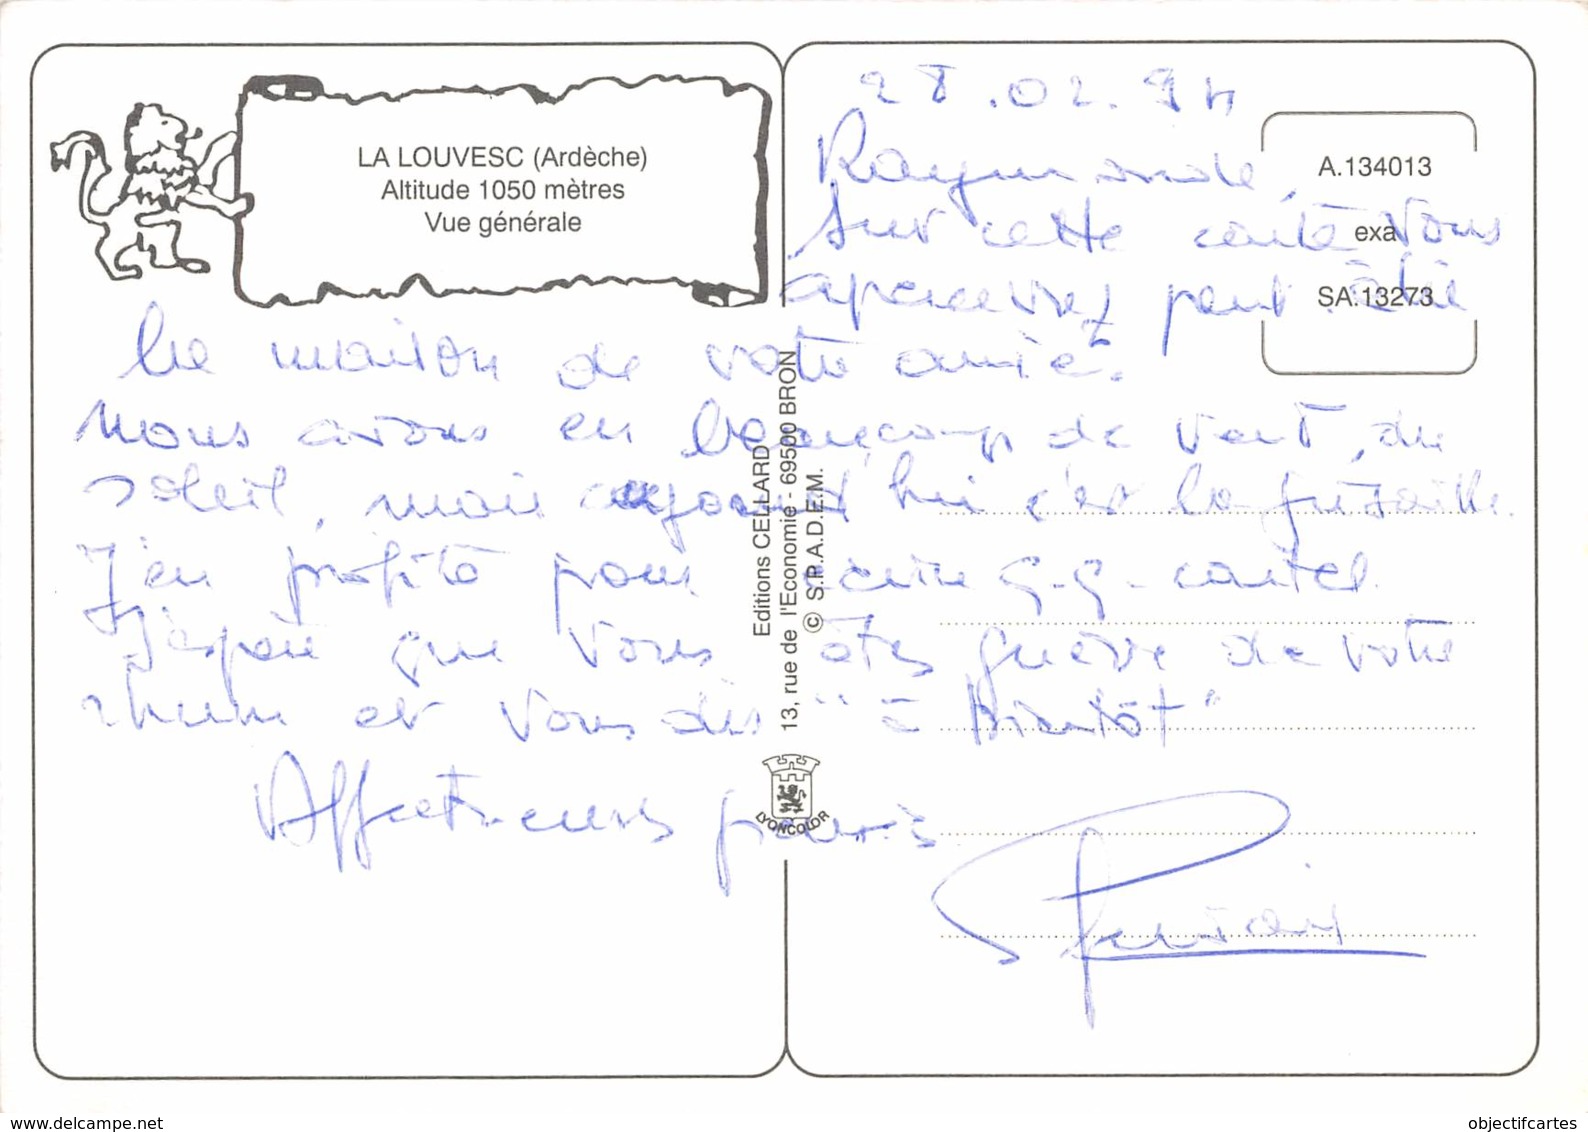 LA LOUVESC (Ardèche)
Altitude 1050 mètres
Vue générale
28.02.94
A.134013
exa
SA.13273
Raymonde,
Sur cette carte vous
apercevrez peut être
la maison de votre amie.
Nous avons eu beaucoup de vent, du
soleil, mais aujourd'hui c'est la grisaille.
J'en profite pour écrire q.q. cartes.
J'espère que vous êtes guérie de votre
rhume et vous dis "à bientôt"
Affectueuses pensées
Editions CELLARD
13, rue de l'Economie - 69500 BRON
© S.P.A.D.E.M.
LYONCOLOR
www.delcampe.net
objectifcartes